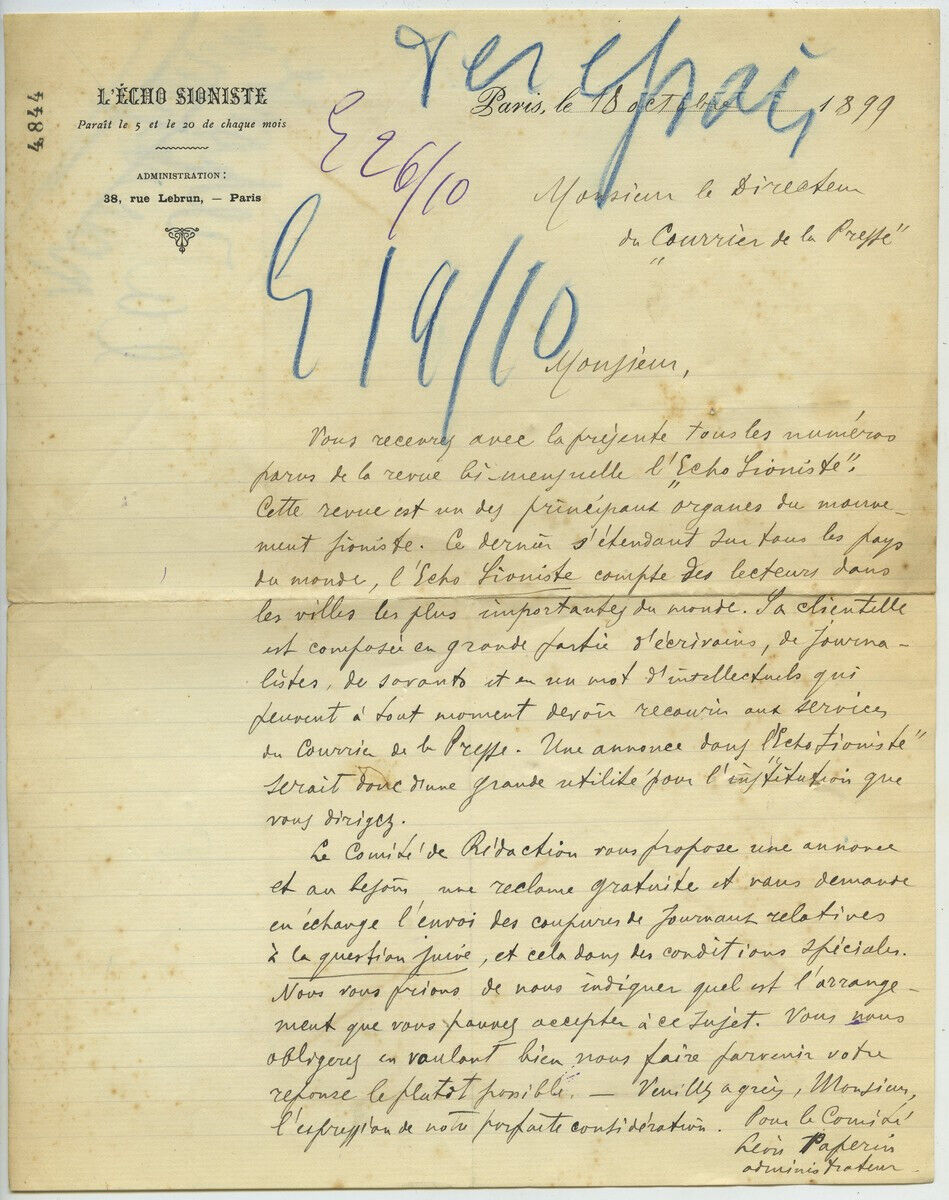 4844
L'ÉCHO SIONISTE
Paraît le 5 et le 20 de chaque mois
ADMINISTRATION:
38, rue Lebrun, — Paris
Paris, le 18 octobre 1899
26/10
19/10
Monsieur le Directeur
du "Courrier de la Presse"
Monsieur,
Vous recevrez avec la présente tous les numéros
parus de la revue bi-mensuelle l'"Echo Sioniste".
Cette revue est un des principaux organes du mouve-
ment sioniste. Ce dernier s'étendant sur tous les pays
du monde, l'Echo Sioniste compte des lecteurs dans
les villes les plus importantes du monde. Sa clientelle
est composée en grande partie d'écrivains, de journa-
listes, de savants et en un mot d'intellectuels qui
peuvent à tout moment devoir recourir aux services
du Courrier de la Presse. Une annonce dans l'"Echo Sioniste"
serait donc d'une grande utilité pour l'institution que
vous dirigez.
Le Comité de Rédaction vous propose une annonce
et au besoin une reclame gratuite et vous demande
en échange l'envoi des coupures de journaux relatives
à la question juive, et cela dans des conditions spéciales.
Nous vous prions de nous indiquer quel est l'arrange-
ment que vous pouvez accepter à ce sujet. Vous nous
obligerez en voulant bien nous faire parvenir votre
reponse le plutôt possible. — Veuillez agréer, Monsieur,
l'expression de notre parfaite considération. Pour le Comité
Léon Paperin
administrateur.